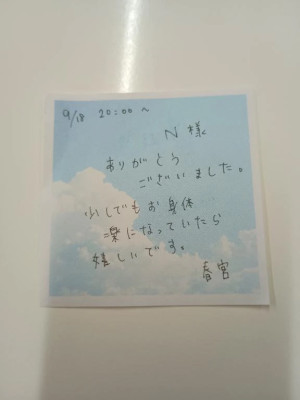 9/18 20:00〜
N 様
ありがとう
ございました。
少しでもお身体
楽になっていたら
嬉しいです。
春宮